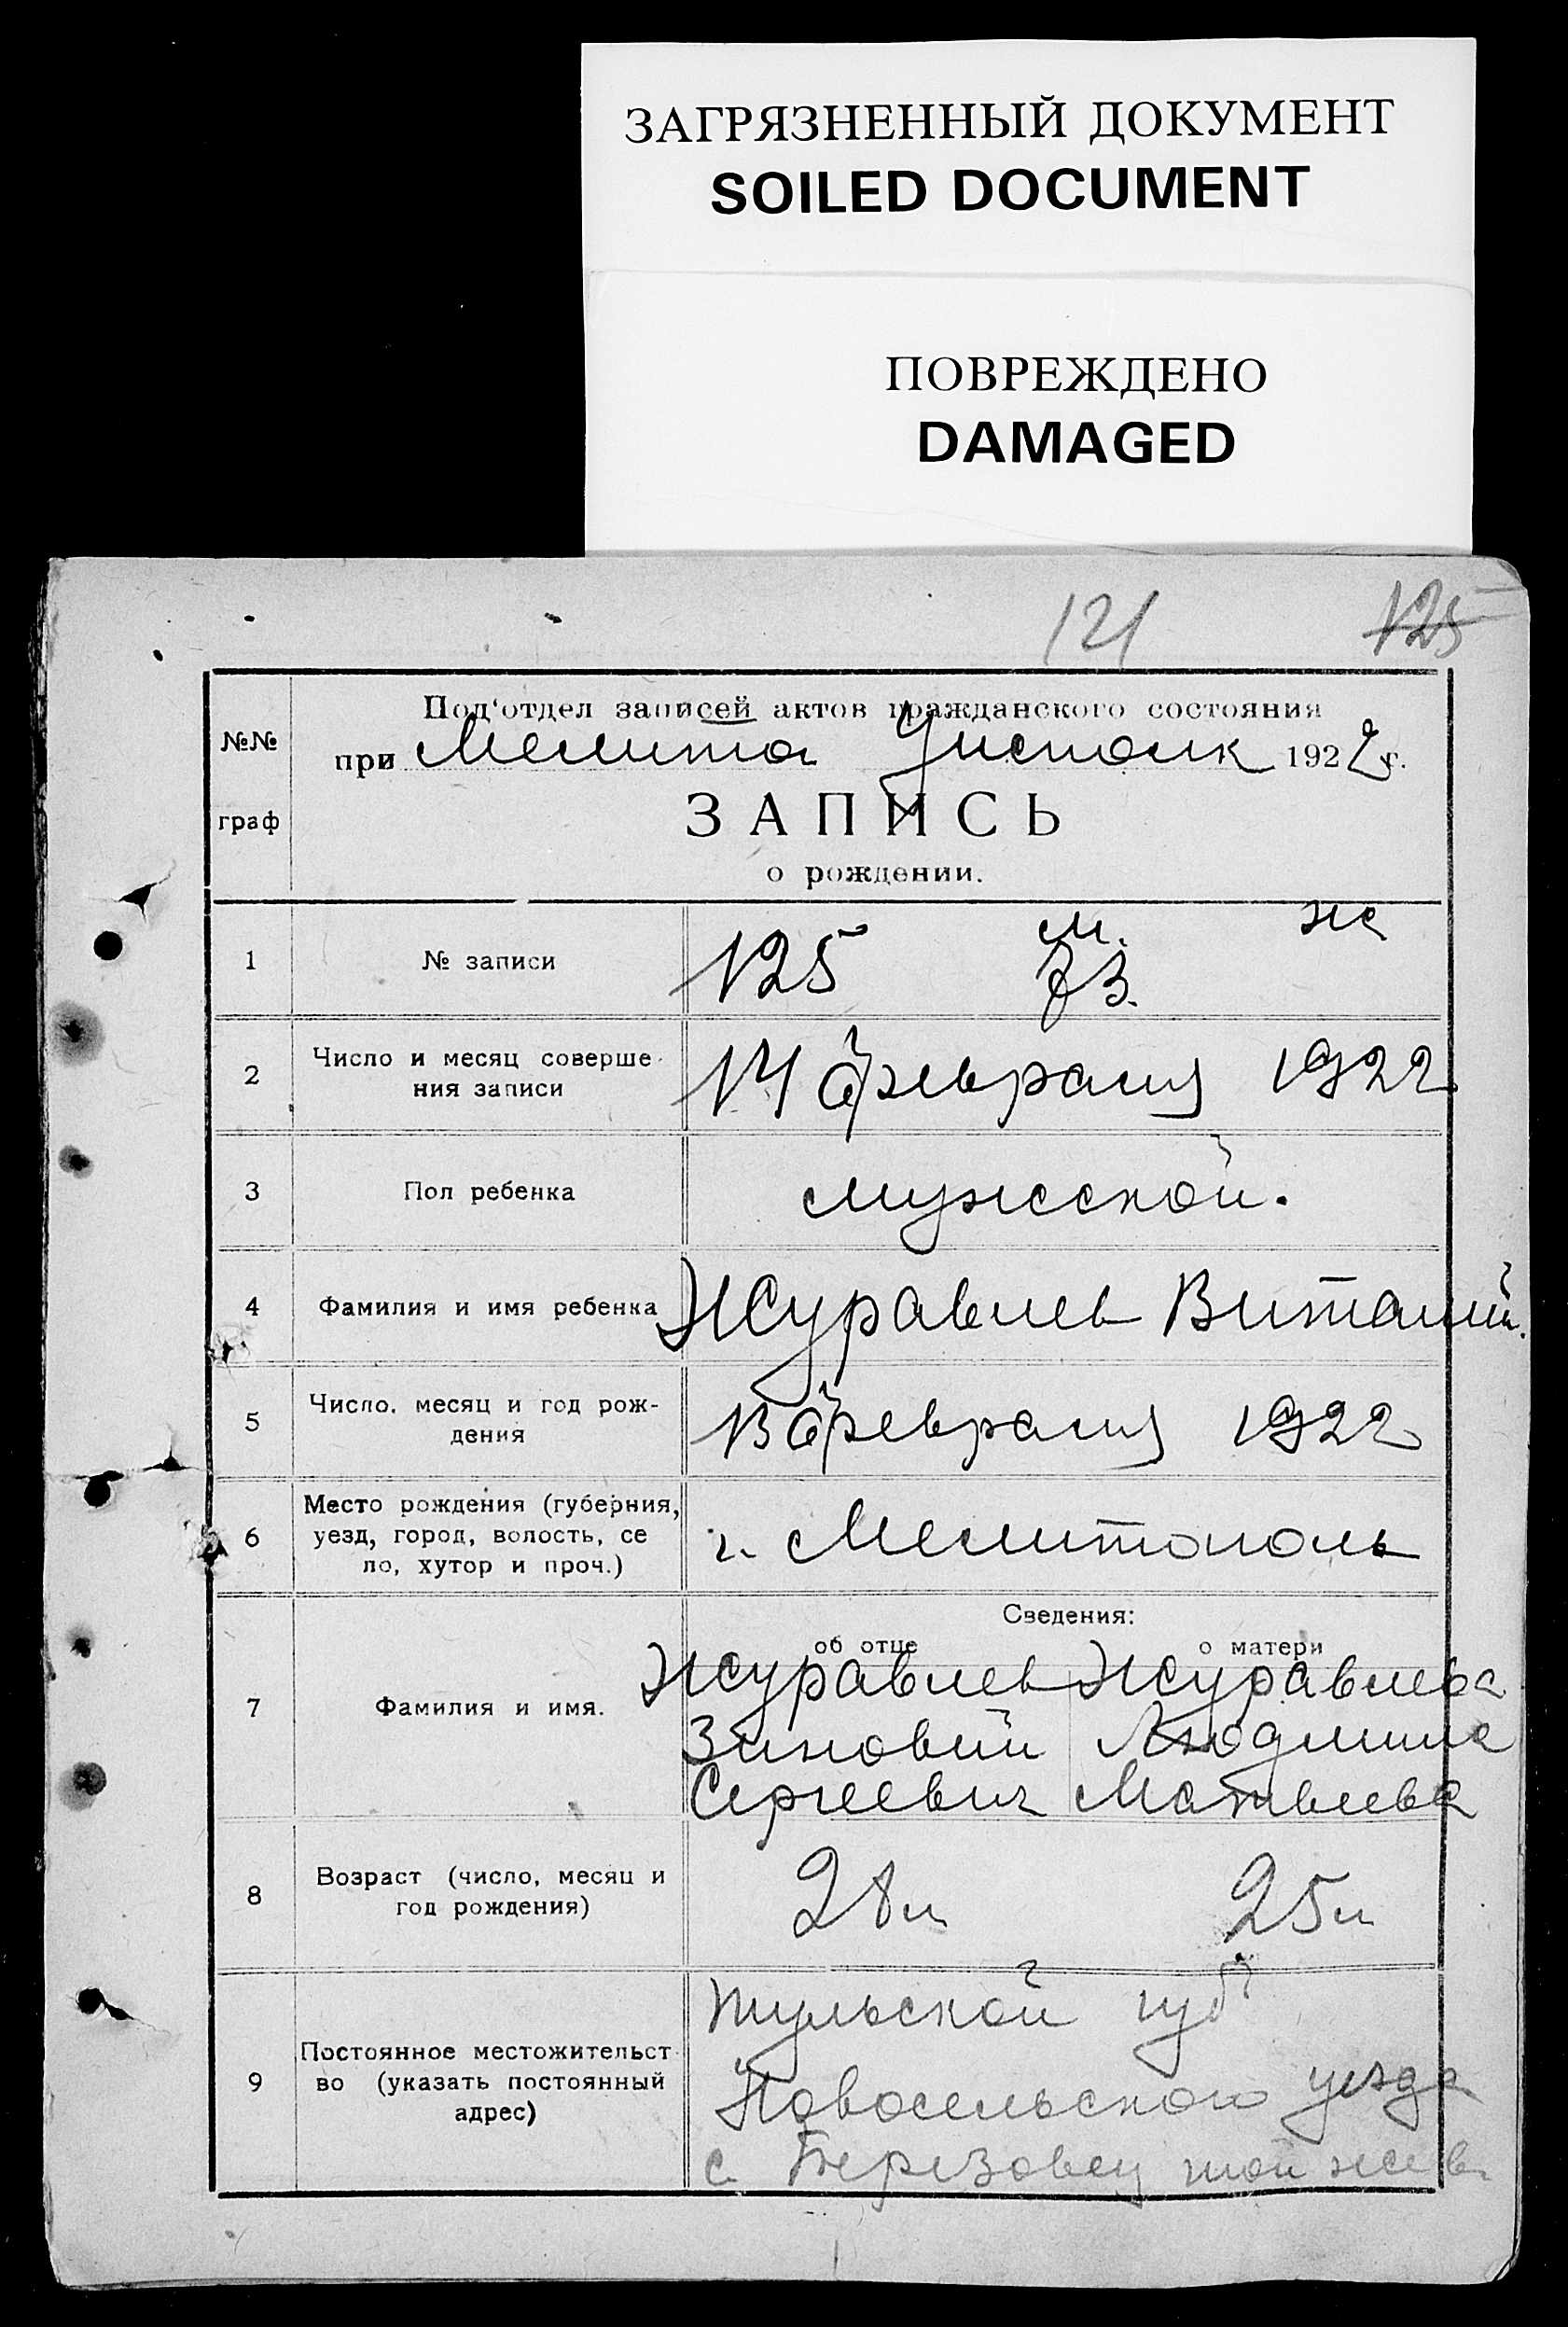 ЗАГРЯЗНЕННЫЙ ДОКУМЕНТ
SOILED DOCUMENT
ПОВРЕЖДЕНО
DAMAGED
121 125
№№ граф
Под‘отдел записей актов гражданского состояния
при Мелито Уисполк 1922 г.
ЗАПИСЬ
о рождении.
1 № записи 125 м. 73. же
2 Число и месяц соверше
ния записи 14 февраля 1922
3 Пол ребенка мужской.
4 Фамилия и имя ребенка Журавлев Виталий.
5 Число, месяц и год рож-
дения 13 февраля 1922
6 Место рождения (губерния,
уезд, город, волость, се
ло, хутор и проч.) г. Мелитополь
Сведения:
об отце о матери
7 Фамилия и имя. Журавлев Журавлева
Зиновий Людмила
Сергеевич Матвеева
8 Возраст (число, месяц и
год рождения) 28 л 25 л
9 Постоянное местожительст
во (указать постоянный
адрес) Тульской губ
Новосельского уезда
с. Березовец той же в.